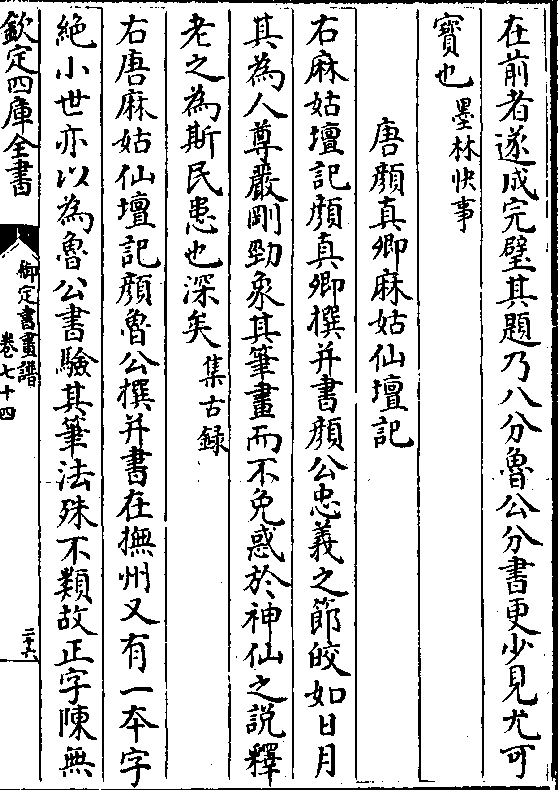 在前者遂成完璧其題乃八分魯公分書更少見尤可
寳也墨林快事
唐顔真卿麻姑仙壇記
右麻姑壇記顔真卿撰并書顔公忠義之節皎如日月
其為人尊嚴剛勁象其筆畫而不免惑於神仙之説釋
老之為斯民患也深矣集古録
右唐麻姑仙壇記顔魯公撰并書在撫州又有一本字
絶小世亦以為魯公書驗其筆法殊不類故正字陳無
欽定四庫全書
御定書畫譜
卷七十四
二十六